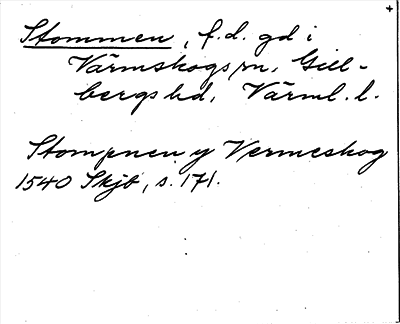 Stommen, f.d. gd i
Värmskogs sn, Gill-
bergs hd, Värml. l.
Stompnen y Vermeskog
1540 Skjb, s. 171.